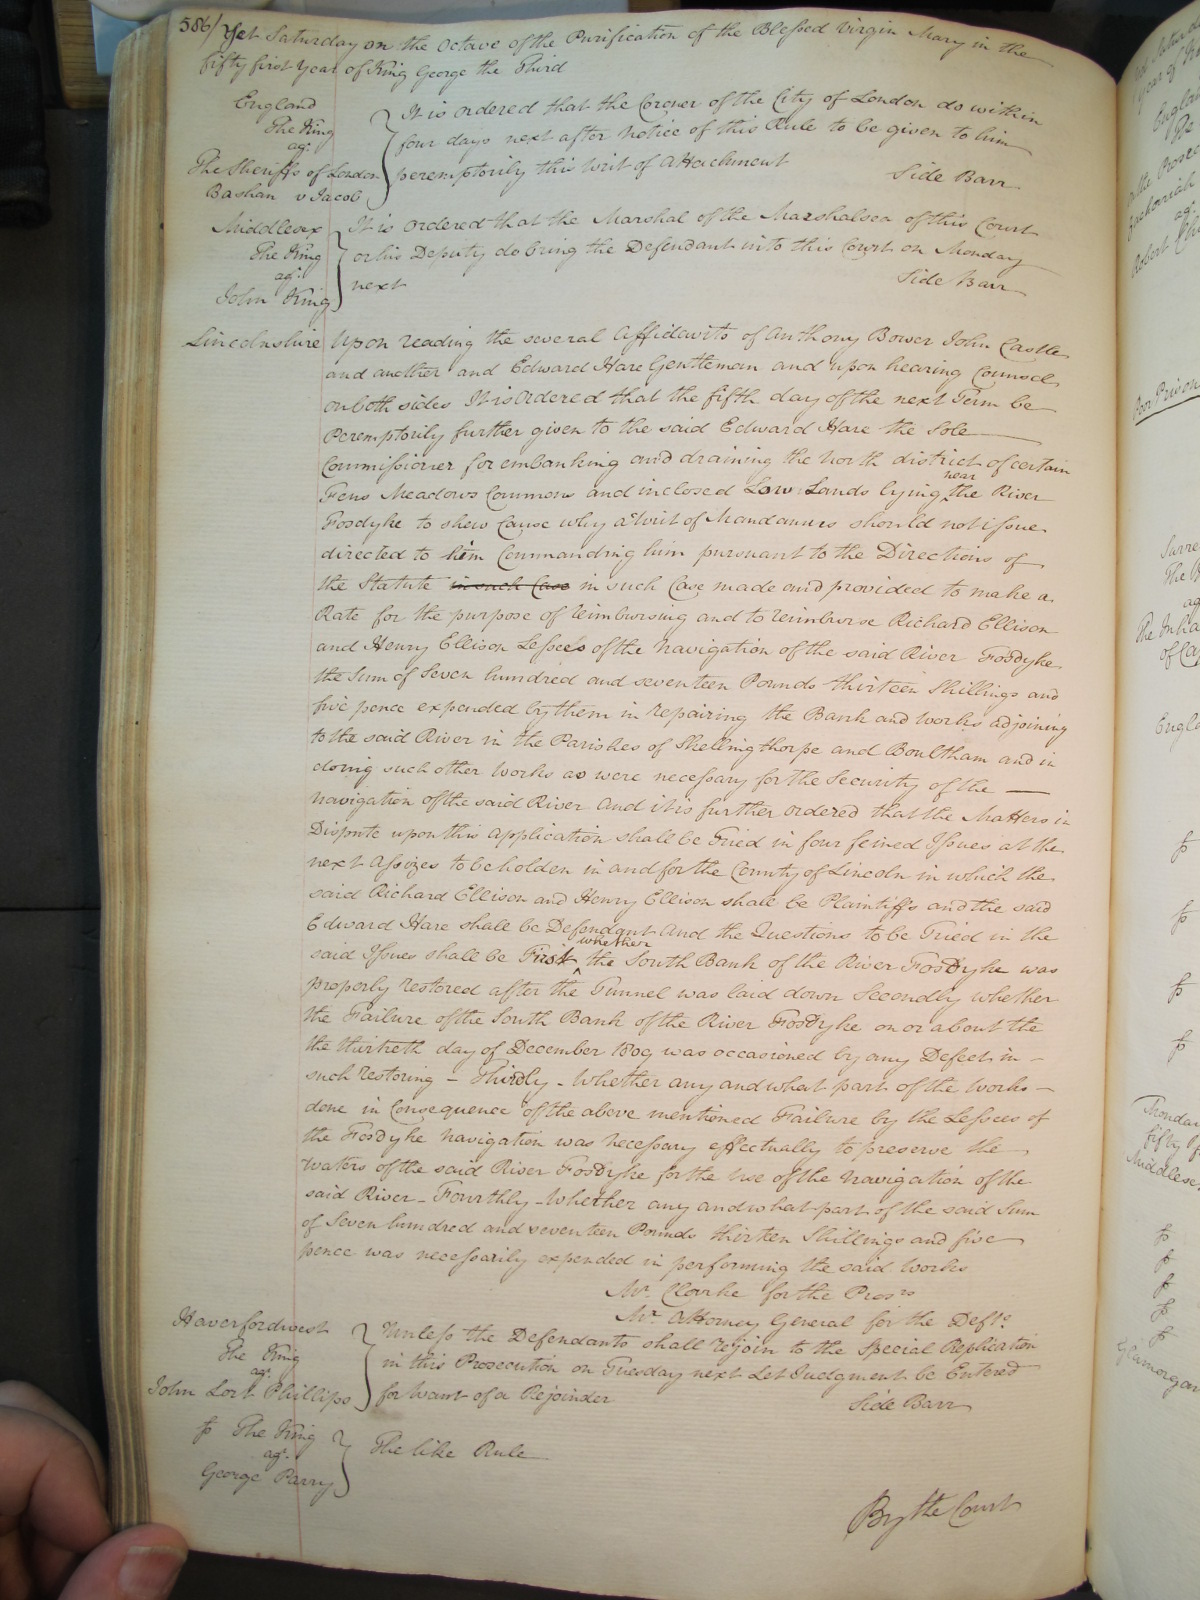 586/ Yet Saturday on the Octave of the Purification of the Blessed Virgin Mary in the
fifty first Year of King George the Third
England
The King
agt.
The Sheriffs of London
Bashan v Jacob
It is ordered that the Coroner of the City of London do within
four days next after notice of this Rule to be given to him
peremptorily this writ of Attachment
Side Barr
Middlesex
The King
agt.
John King
It is ordered that the Marshal of the Marshalsea of this Court
or his Deputy do bring the Defendant into this Court on Monday
next
Side Barr
Lincolnshire Upon reading the several Affidavits of Anthony Bower John Castle
and another and Edward Hare Gentleman and upon hearing Counsel
on both sides It is Ordered that the fifth day of the next Term be
Peremptorily further given to the said Edward Hare the Sole
Commissioner for embanking and draining the North district of certain
Fens Meadows Commons and inclosed Low Lands lying near the River
Fosdyke to shew Cause why a Writ of Mandamus should not issue
directed to him Commanding him pursuant to the Directions of
the Statute in such Case in such Case made and provided to make a
Rate for the purpose of reimbursing and to reimburse Richard Ellison
and Henry Ellison Lessees of the Navigation of the said River Fosdyke
the Sum of Seven hundred and seventeen Pounds thirteen Shillings and
five pence expended by them in repairing the Bank and Works adjoining
to the said River in the Parishes of Skellingthorpe and Boultham and in
doing such other Works as were necessary for the Security of the
Navigation of the said River And it is further ordered that the Matters in
Dispute upon this Application shall be Tried in four feined Issues at the
next Assizes to be holden in and for the County of Lincoln in which the
said Richard Ellison and Henry Ellison shall be Plaintiffs and the said
Edward Hare shall be Defendant And the Questions to be Tried in the
said Issues shall be First whether the South Bank of the River Fosdyke was
properly restored after the Tunnel was laid down Secondly whether
the Failure of the South Bank of the River Fosdyke on or about the
the thirtieth day of December 1809 was occasioned by any Defect in -
such restoring - Thirdly - Whether any and what part of the Works -
done in Consequence of the above mentioned Failure by the Lessees of
the Fosdyke Navigation was necessary effectually to preserve the
Waters of the said River Fosdyke for the use of the Navigation of the
said River - Fourthly - Whether any and what part of the said Sum
of Seven hundred and seventeen Pounds thirteen Shillings and five
pence was necessarily expended in performing the said Works
Mr. Clarke for the Pros.rs
Mr. Attorney General for the Deft.
Haverfordwest
The King
agt.
John Lort Phillips
Unless the Defendants shall rejoin to the Special Replication
in this Prosecution on Tuesday next Let Judgment be Entered
for want of a Rejoinder
Side Barr
The King
agt.
George Parry
The like Rule
By the Court